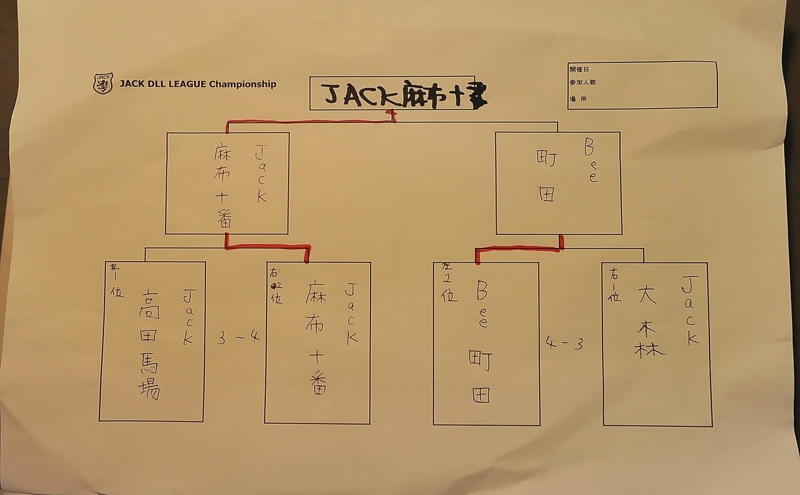 JACK DLL LEAGUE Championship
JACK麻布十番
開催日
参加人数
場所
Jack
麻布十番
Bee
町田
左1位
Jack
高田馬場
3-4
右2位
Jack
麻布十番
左2位
Bee
町田
4-3
右1位
Jack
大森